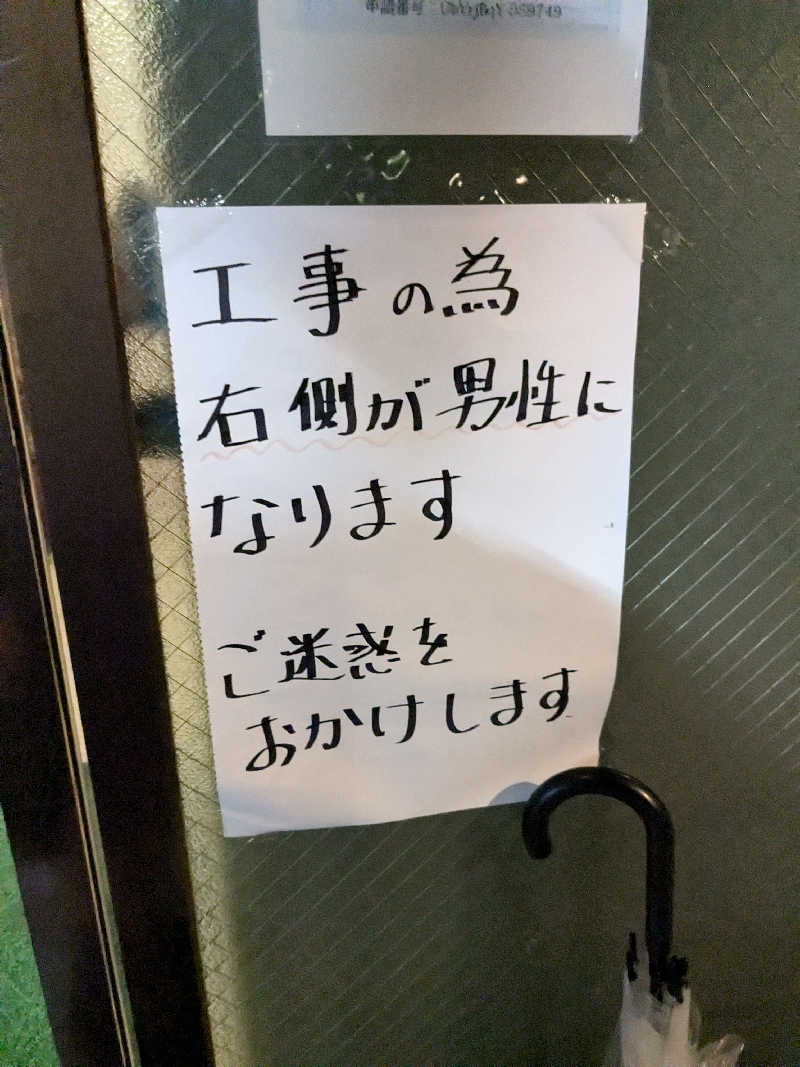 申請番号
工事の為
右側が男性に
なります
ご迷惑を
おかけします